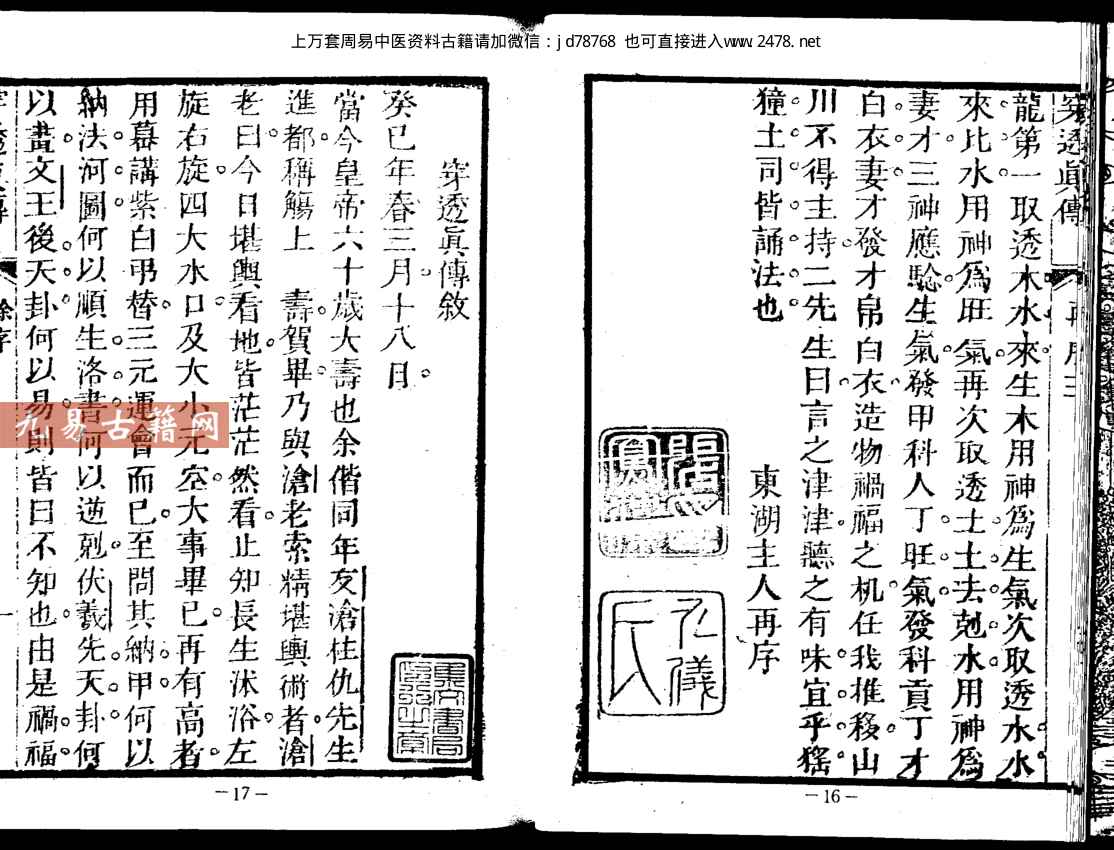 上万套周易中医资料古籍请加微信：jd78768 也可直接进入www.2478.net
穿透眞傳
龍第一取透木水來生木用神爲生氣次取透水水
來比水用神爲旺氣再次取透土土去剋水用神爲
妻才三神應騐生氣發甲科人丁旺氣發科貢丁才
白衣妻才發才帛白衣造物禍福之机任我推移山
川不得主持二先生曰言之津津聽之有味宜乎猺
獞土司皆誦法也
東湖主人再序
九儀
氏
－16－
穿透眞傳敘
癸巳年春三月十八日
當今皇帝六十歲大壽也余偕同年友滄柱仇先生
進都稱觴上 壽賀畢乃與滄老索精堪輿術者滄
老曰今日堪輿看地皆茫茫然看止知長生沐浴左
旋右旋四大水口及大小元空大事畢已再有高者
用幕講紫白弔替三元運會而已至問其納甲何以
納法河圖何以順生洛書何以逆剋伏羲先天卦何
以畫文王後天卦何以易則皆曰不知也由是禍福
九易古籍网
－17－